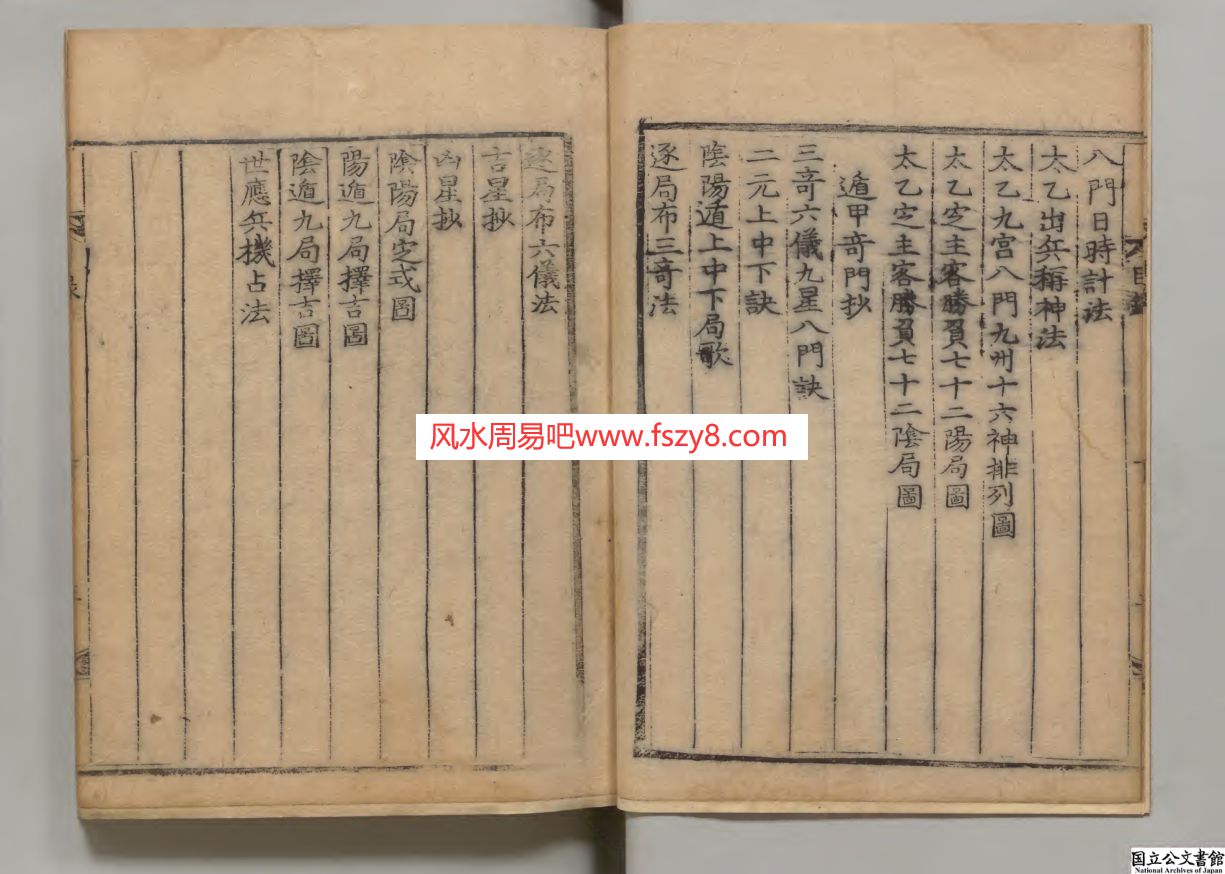 八門日時計法
太乙出兵稱神法
太乙九宮八門九州十六神排列圖
太乙㝎主客勝負七十二陽局圖
太乙㝎主客勝負七十二陰局圖
遁甲竒門抄
三竒六儀九星八門訣
二元上中下訣
陰陽遁上中下局歌
逐局布三竒法
逐局布六儀法
吉星抄
凶星抄
陰陽局㝎式圖
陽遁九局擇吉圖
陰遁九局擇吉圖
世應兵機占法
风水周易吧www.fszy8.com
国立公文書館
National Archives of Japan